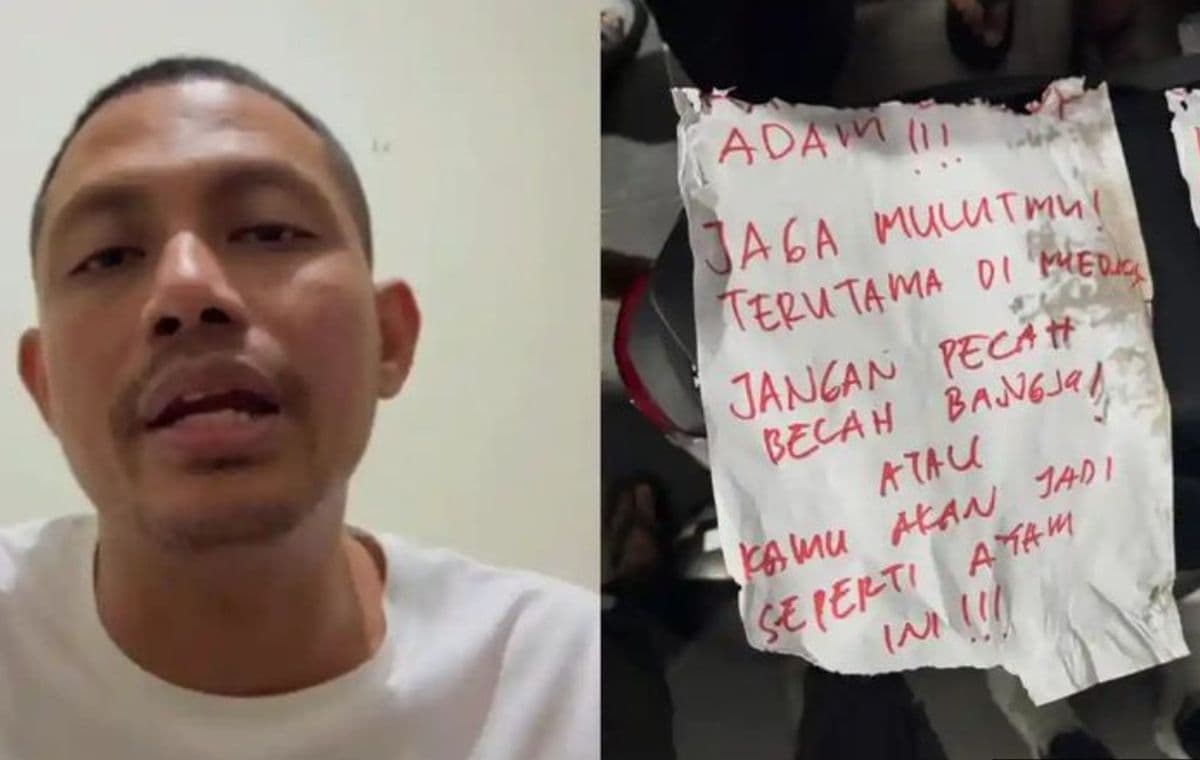 ADAM!!!
JAGA MULUTMU!
TERUTAMA DI MEDIA
JANGAN PECAH
BECAH BANGSA!
ATAU
KAMU AKAN JADI
SEPERTI AYAM
INI!!!